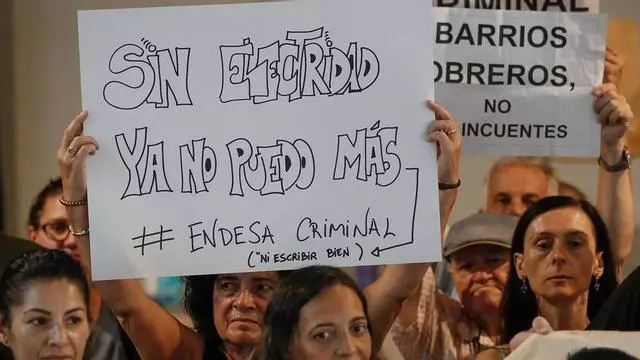 SIN ELECTRIDAD
YA NO PUEDO MÁS
# ENDESA CRIMINAL
(*NI ESCRIBIR BIEN)
BARRIOS
OBREROS,
NO
INCUENTES